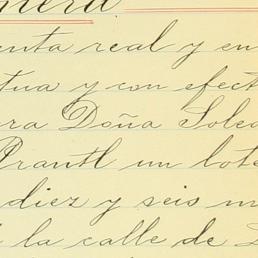 mera
enta real y en
tua y con efect
ora Doña Soled
Prantl un lote
diez y seis m
la calle de